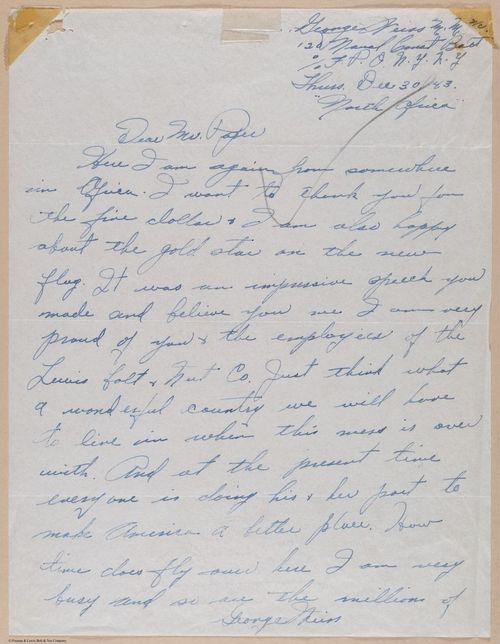 George Weiss M. M.
120 Naval Const Batt
% F. P. O. N. Y. N. Y
Thurs. Dec 30/43.
"North Africa"
Dear Mr. Paper
Here I am again from somewhere
in Africa. I want to thank you for
the five dollar & I am also happy
about the gold star on the new
flag. It was an impressive speech you
made and believe you me I am very
proud of you & the employees of the
Lewis Bolt & Nut Co. Just think what
a wonderful country we will have
to live in when this mess is over
with. And at the present time
everyone is doing his & her part to
make America a better place. How
time does fly over here I am very
busy and so are the millions of
George Weiss